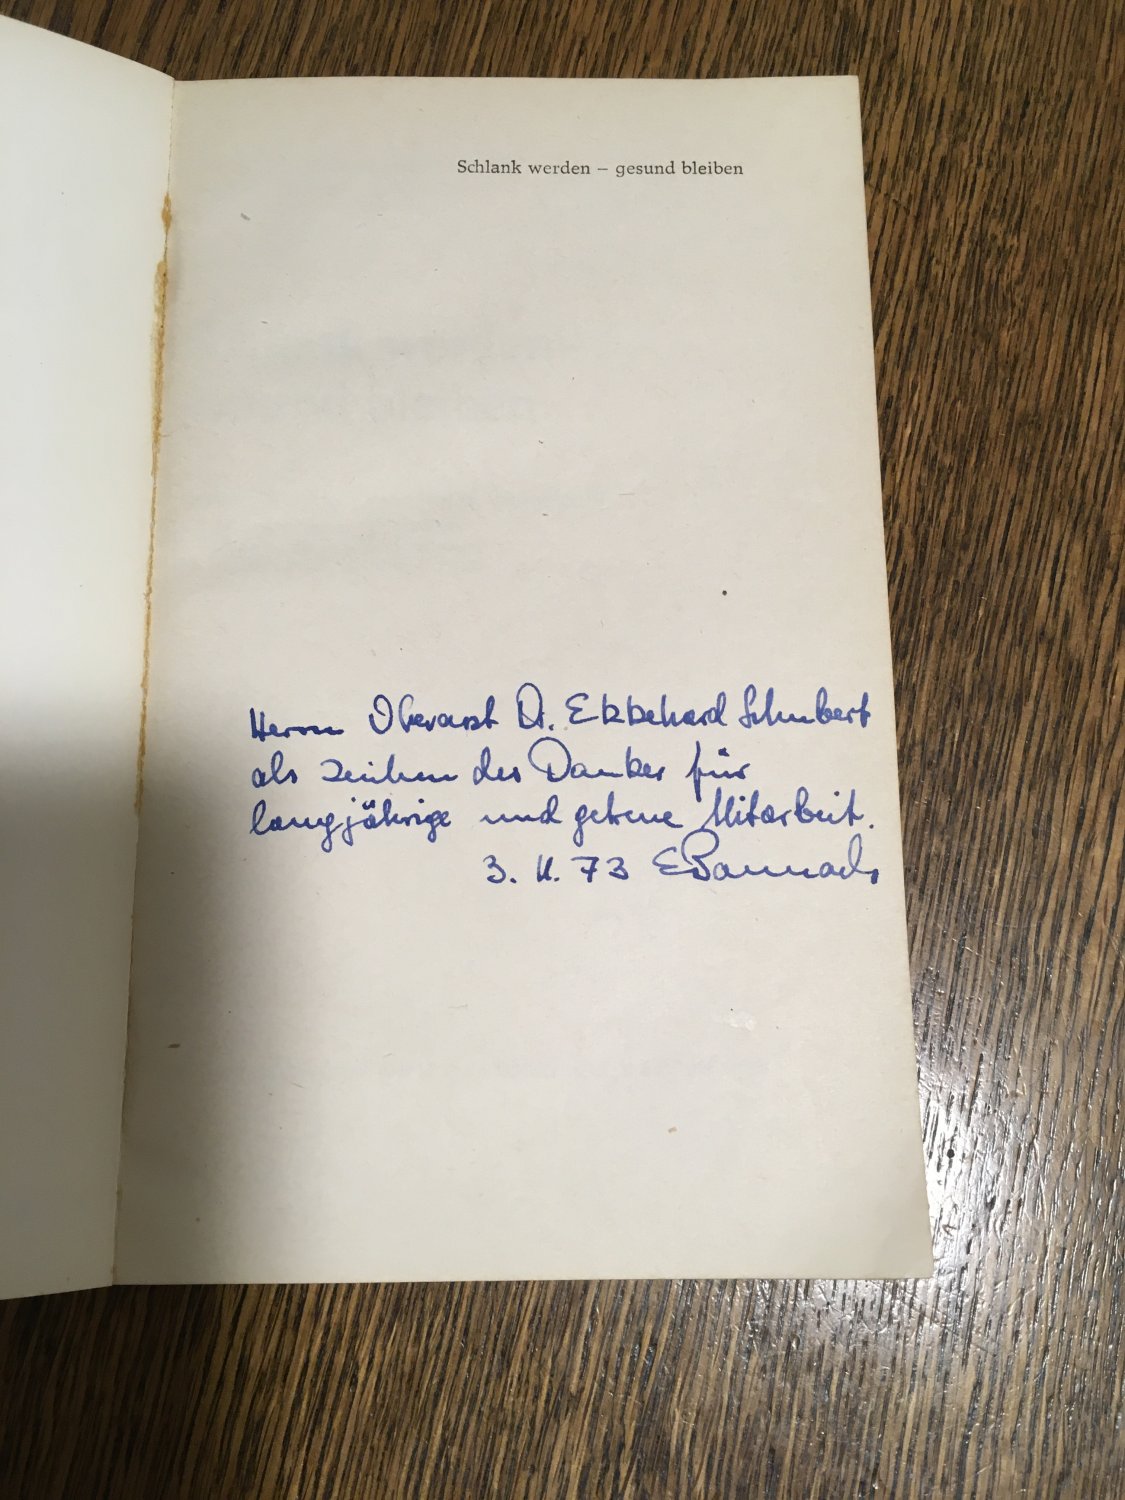 Schlank werden – gesund bleiben
Herrn Oberarzt Dr. Ekkehard Schubert
als Zeichen des Dankes für
langjährige und getreue Mitarbeit.
3. II. 73 EBannach